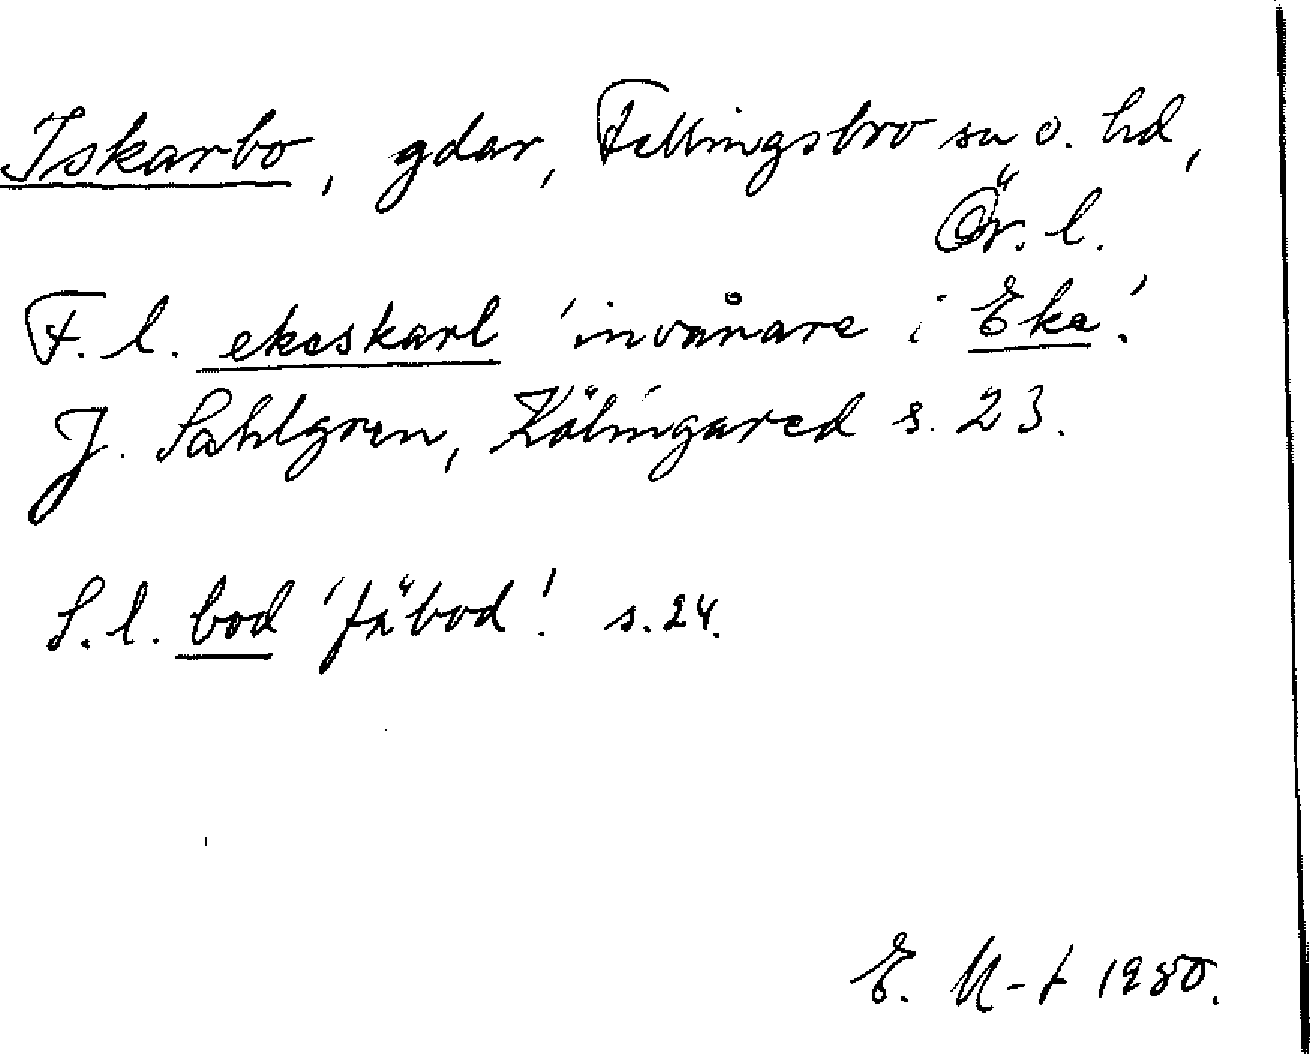 Iskarbo, gdar, Fellingsbro sn o. hd,
Ör. l.
F. l. ekeskarl 'invånare i Eke'.
J. Sahlgren, Kölingared s. 23.
S. l. bod 'fäbod'. s. 24.
E. 1980.